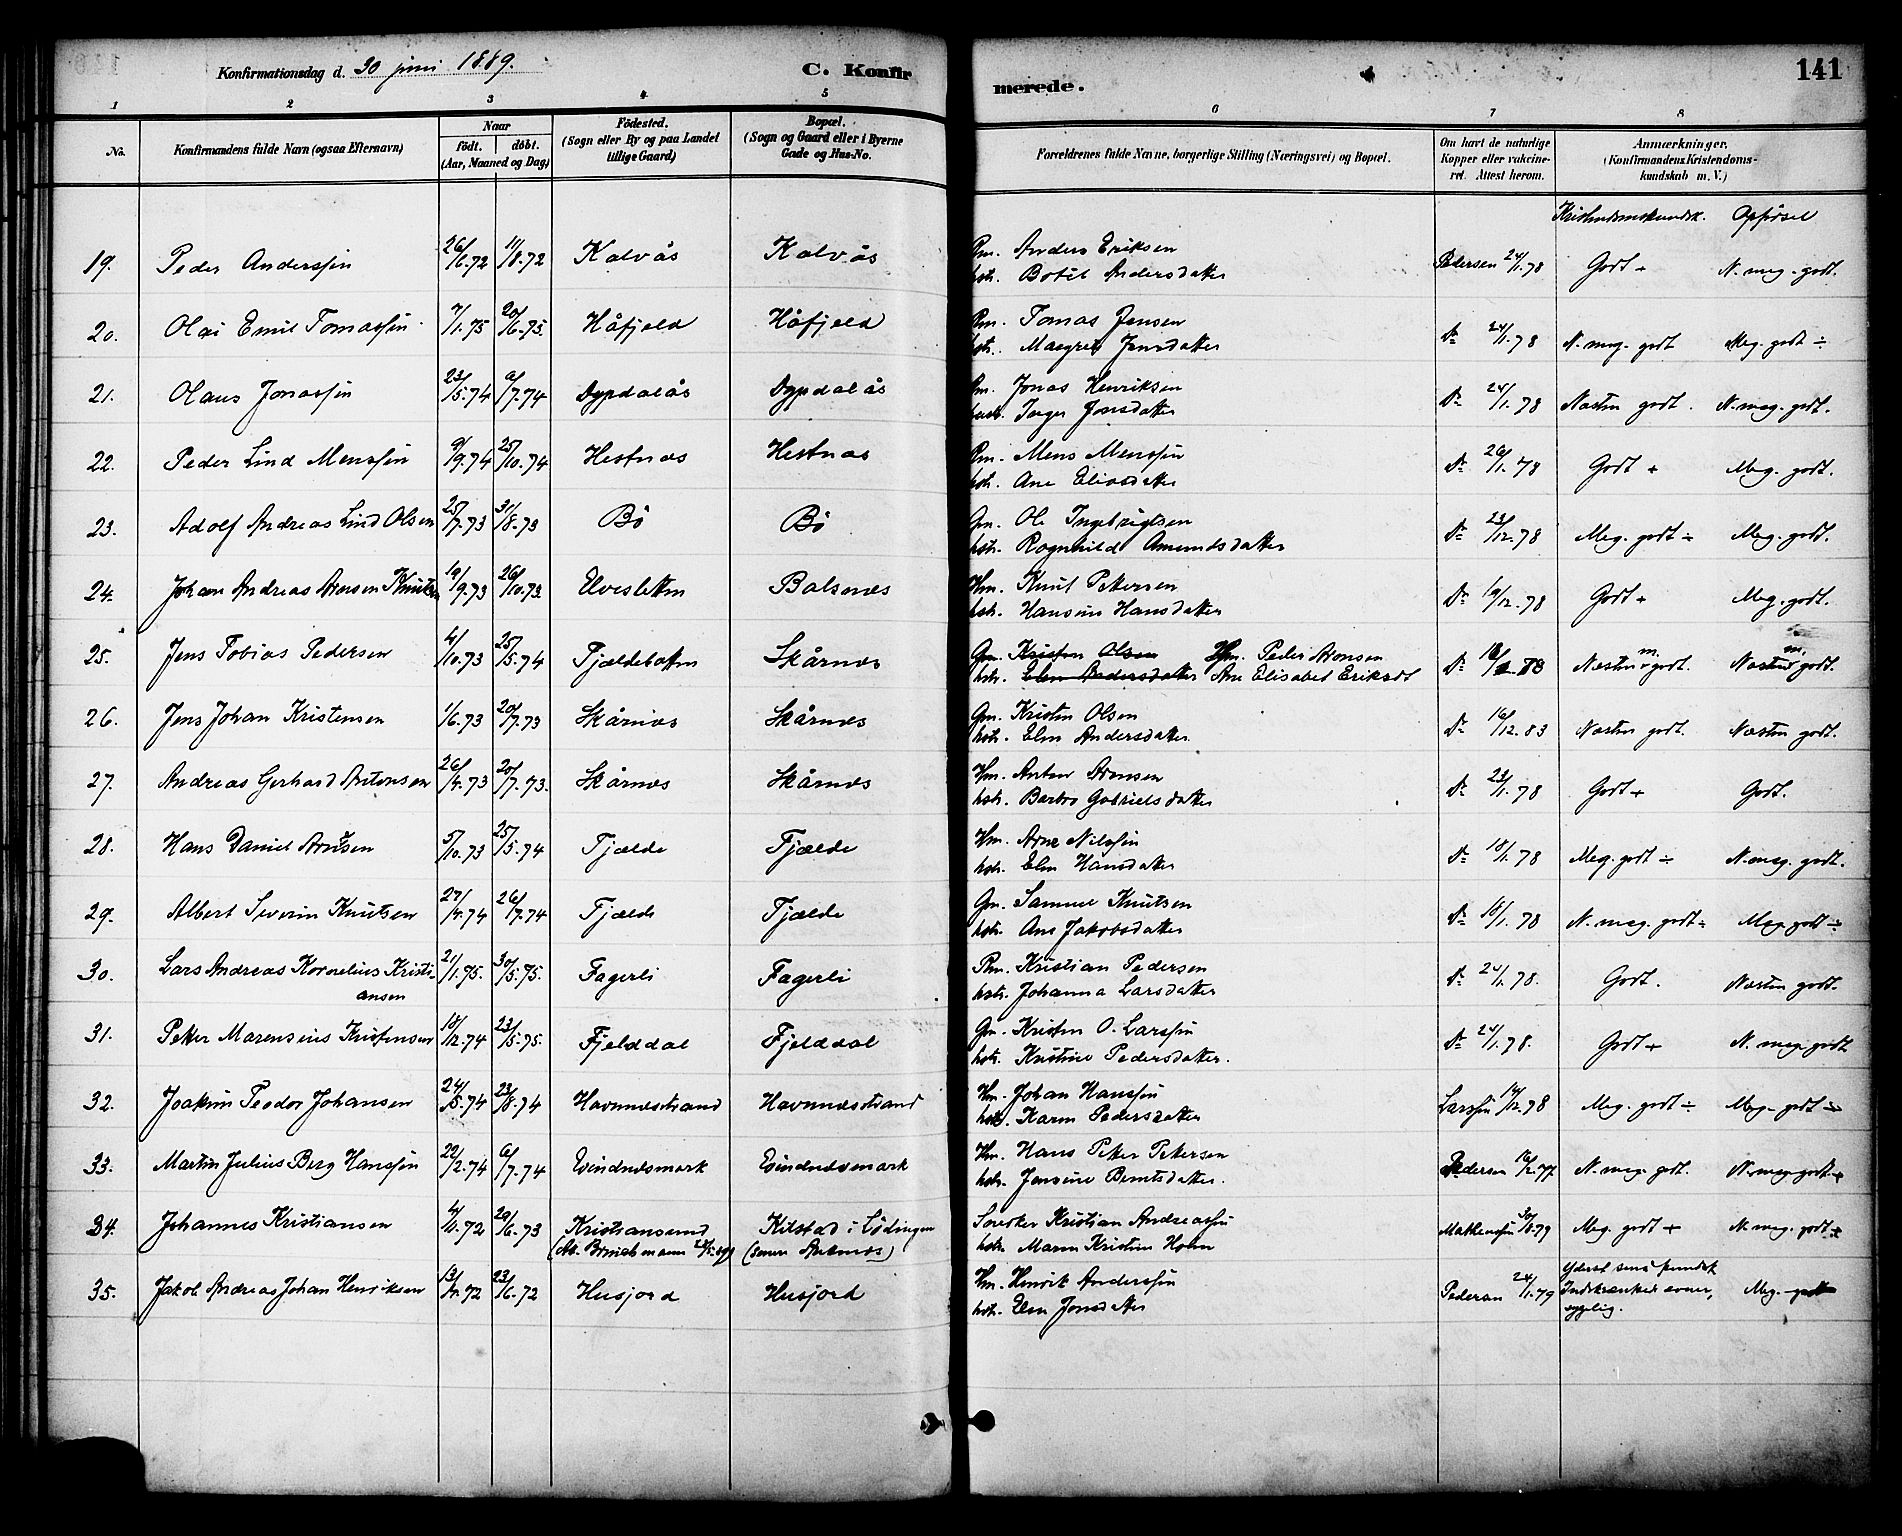 Konfirmationsdag d. 30 juni 1889. C. Konfirmerede. 141
1 2 3 4 5 6 7 8
No. Konfirmandens fulde Navn (ogsaa Efternavn) Naar födt. döbt. (Aar, Maaned og Dag) Födested. (Sogn eller By og paa Landet tillige Gaard) Bopæl. (Sogn og Gaard eller i Byerne Gade og Hus-No. Forældrenes fulde Navne, borgerlige Stilling (Næringsvei) og Bopæl. Om havt de naturlige Kopper eller vakcineret. Attest herom. Anmærkninger, (Konfirmandens Kristendomskundskab m. V.)
Kristendomskundsk. Opførsel
19. Peder Anderssen 26/6.72 11/8.72 Kalvås Kalvås Pm. Anders Eriksen Pedersen 24/1.78 Godt + N. meg. godt.
hstr. Botel Andersdatter
20. Olai Emil Tomassen 7/1.75 20/6.75 Håfjeld Håfjeld Pm. Tomas Jensen Do 24/1.78 N. meg. godt Meg. godt ÷
hstr. Masgret Jensdatter
21. Olaus Jonassen 23/5.74 6/7.74 Dypdalås Dypdalås Pm. Jonas Henriksen Do 24/1.78 Næsten godt. N. meg. godt.
hust. Inger Jonsdatter
22. Peder Lind Menssen 9/9.74 25/10.74 Hestnæs Hestnæs Pm. Mens Menssen Do 26/1.78 Godt + Meg. godt.
hstr. Ane Eliasdatter
23. Adolf Andreas Lind Olsen 25/7.73 31/8.73 Bö Bö Gm. Ole Ingebrigtsen Do 23/12.78 Meg. godt ÷ Meg. godt.
hstr. Ragnhild Amundsdatter
24. Johan Andreas Aronsen Knutsen 19/9.73 26/10.73 Elvesletten Balsnes Hm. Knut Petersen Do 19/12.78 Godt + Meg. godt.
hstr. Hansine Hansdatter
25. Jens Tobias Pedersen 4/10.73 25/5.74 Tjældebotten Skårnæs Gm. Kristen Olsen Hm. Peder Aronsen Næsten m. godt. Næsten m. godt.
hstr. Elen Andersdatter Ane Elisabet Eriksdt
26. Jens Johan Kristensen 1/6.73 20/7.73 Skårnæs Skårnæs Gm. Kristen Olsen Do 16/12.83 Næsten godt. Næsten godt.
hstr. Elen Andersdatter.
27. Andreas Gerhard Antonsen 26/4.73 20/7.73. Skårnæs Skårnæs Hm. Anton Aronsen Do 23/1.78 Godt + Godt.
hstr. Barbro Gabrielsdatter
28. Hans Daniel Arnsen 5/10.73 25/5.74 Tjælde Tjælde Hm. Arne Nilssen Do 18/1.78 Meg. godt ÷ N. meg. godt.
hstr. Elen Hansdatter
29. Albert Severin Knutsen 27/4.74 26/7.74 Tjælde Tjælde Gm. Samuel Knutsen Do 18/1.78 N. meg. godt ÷ Meg. godt ÷
hstr. Ane Jakobsdatter
30. Lars Andreas Kornelius Kristiansen 21/1.75. 30/5.75. Fagerli Fagerli Pm. Kristian Pedersen Do 24/1.78. Godt. Næsten godt.
hstr. Johanna Larsdatter
31. Peter Marensius Kristensen 18/12.74 23/5.75. Fjelddal Fjelddal Gm. Kristen O. Larssen Do 24/1.78. Godt + N. meg. godt
hstr. Kristine Pedersdatter.
32. Joakim Teodor Johansen 24/5.74 23/8.74 Havnnæsstrand Havnnæsstrand Hm. Johan Hanssen Larssen 14/12.78 Meg. godt ÷ Meg. godt ÷
hstr. Karen Pedersdatter
33. Martin Julius Berg Hanssen 22/2.74 6/7.74 Evindnæsmark Evindnæsmark Hm. Hans Peter Petersen Pedersen N. meg. godt. N. meg. godt +
hstr. Jensine Berntsdatter.
34. Johannes Kristiansen 4/11.72 29/6.73 Kristiansund Kilstad i Lödingen Kristian Andreassen Meg. godt + N. meg. godt +
hstr. Maren Kristine Holm
35. Jakob Andreas Johan Henriksen 13/4.72 23/6.72 Husjord Husjord Hm. Henrik Anderssen Pedersen 24/1.79 Yderst små kundsk Indskrænkede evner, sygelig. Meg. godt
hstr. Elen Jonsdatter